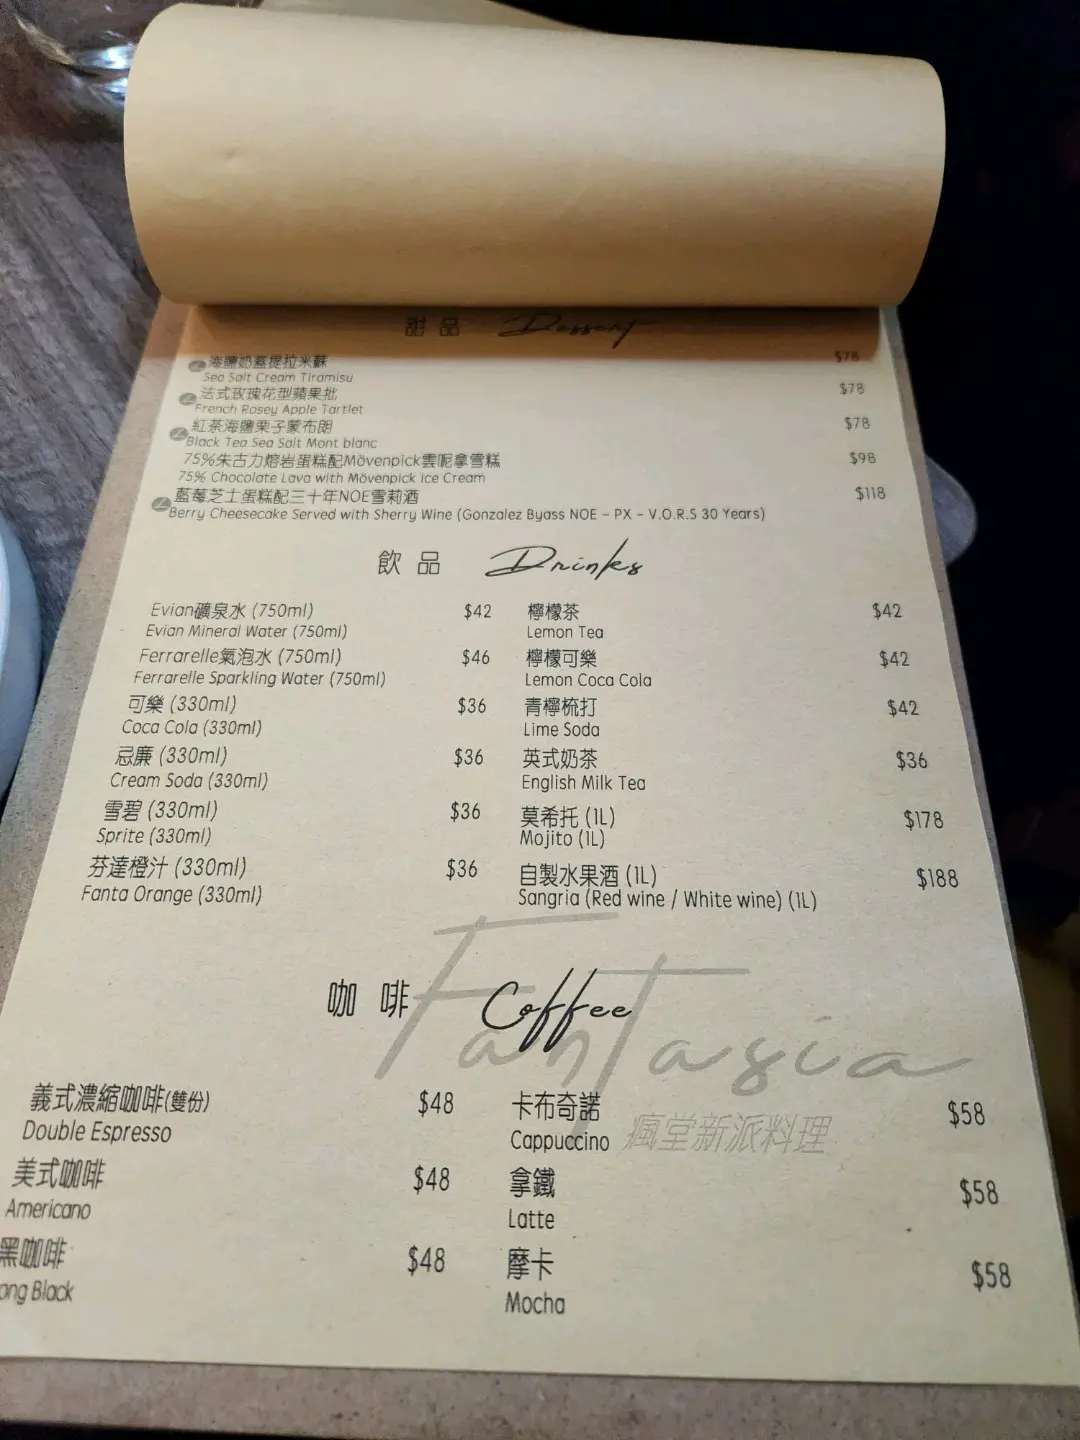 甜品 Dessert
海鹽奶蓋提拉米蘇 $78
Sea Salt Cream Tiramisu
法式玫瑰花型蘋果批 $78
French Rosey Apple Tartlet
紅茶海鹽栗子蒙布朗 $78
Black Tea Sea Salt Mont blanc
75%朱古力熔岩蛋糕配Mövenpick雲呢拿雪糕 $98
75% Chocolate Lava with Mövenpick Ice Cream
藍莓芝士蛋糕配三十年NOE雪莉酒 $118
Berry Cheesecake Served with Sherry Wine (Gonzalez Byass NOE - PX - V.O.R.S 30 Years)
飲品 Drinks
Evian礦泉水 (750ml) $42
Evian Mineral Water (750ml)
Ferrarelle氣泡水 (750ml) $46
Ferrarelle Sparkling Water (750ml)
可樂 (330ml) $36
Coca Cola (330ml)
忌廉 (330ml) $36
Cream Soda (330ml)
雪碧 (330ml) $36
Sprite (330ml)
芬達橙汁 (330ml) $36
Fanta Orange (330ml)
檸檬茶 $42
Lemon Tea
檸檬可樂 $42
Lemon Coca Cola
青檸梳打 $42
Lime Soda
英式奶茶 $36
English Milk Tea
莫希托 (1L) $178
Mojito (1L)
自製水果酒 (1L) $188
Sangria (Red wine / White wine) (1L)
咖啡 Coffee
Fantasia
瘋堂新派料理
義式濃縮咖啡(雙份) $48
Double Espresso
美式咖啡 $48
Americano
黑咖啡 $48
ong Black
卡布奇諾 $58
Cappuccino
拿鐵 $58
Latte
摩卡 $58
Mocha